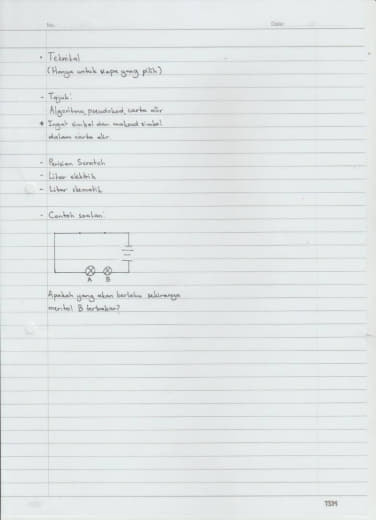 No.
Date:
• Teknikal
(Hanya untuk siapa yang pilih)
- Tajuk:
Algoritma, pseudokod, carta alir
* Ingat simbol dan maksud simbol
dalam carta alir
- Perisian Scratch
- Litar elektrik
- Litar skematik
- Contoh soalan:
A B
Apakah yang akan berlaku sekiranya
mentol B terbakar?